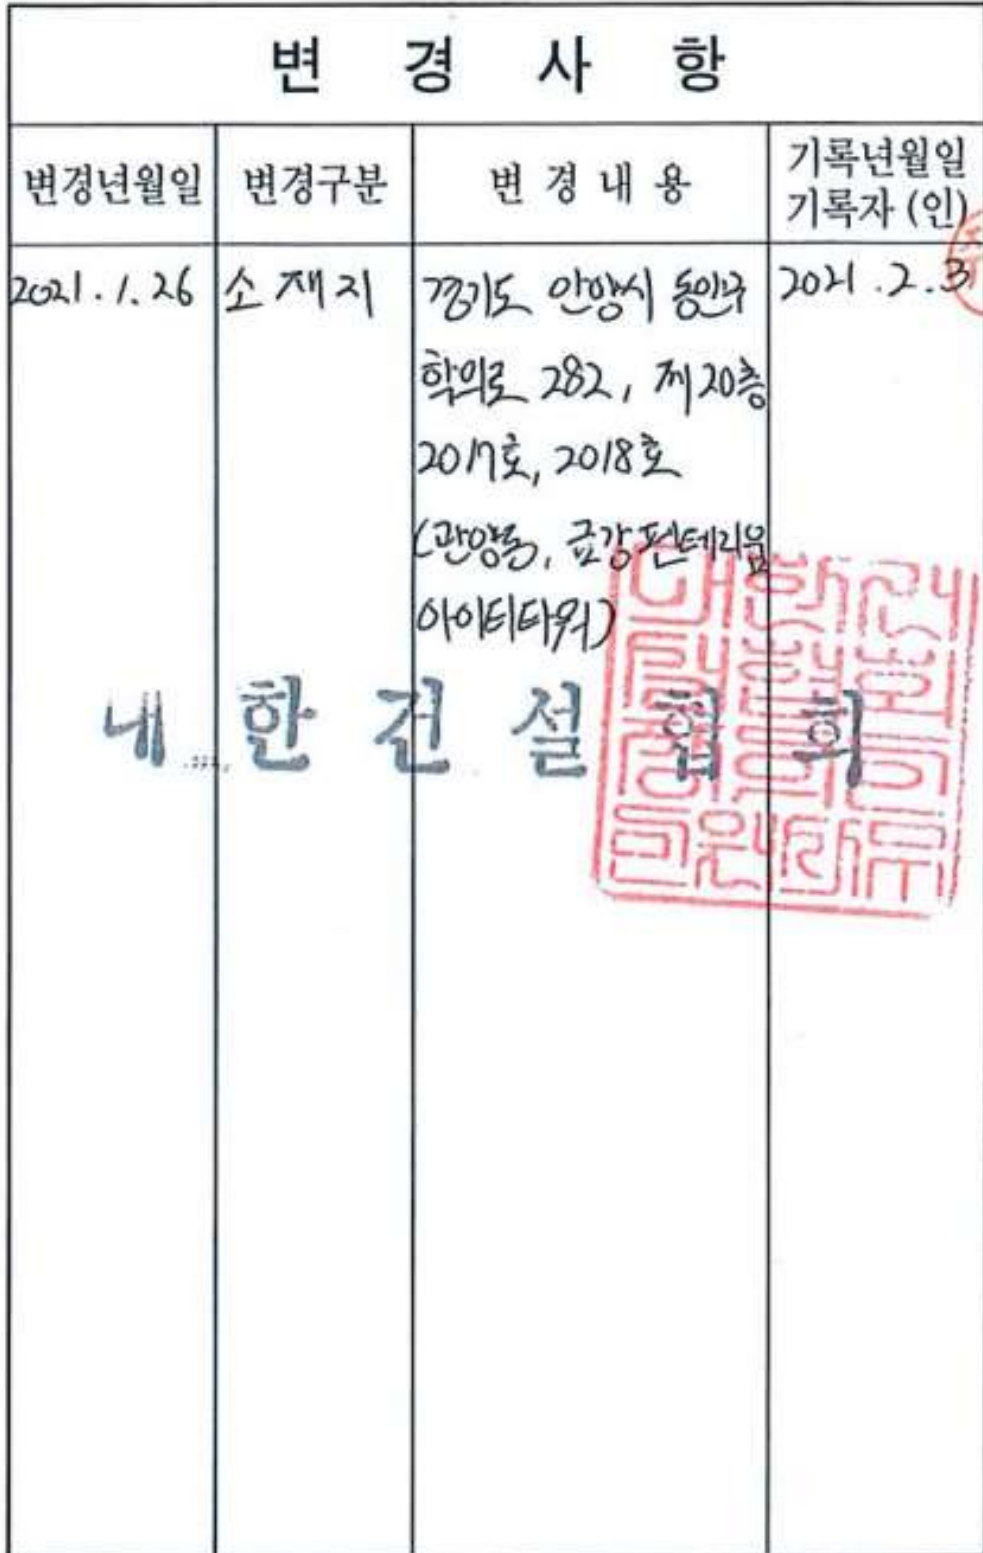 변 경 사 항
변경년월일 변경구분 변 경 내 용 기록년월일
기록자 (인)
2021.1.26 소재지 경기도 안양시 동안구 2021.2.3
학의로 282, 제20층
2017호, 2018호
(관양동, 금강펜테리움
아이티타워)
대한건설협회